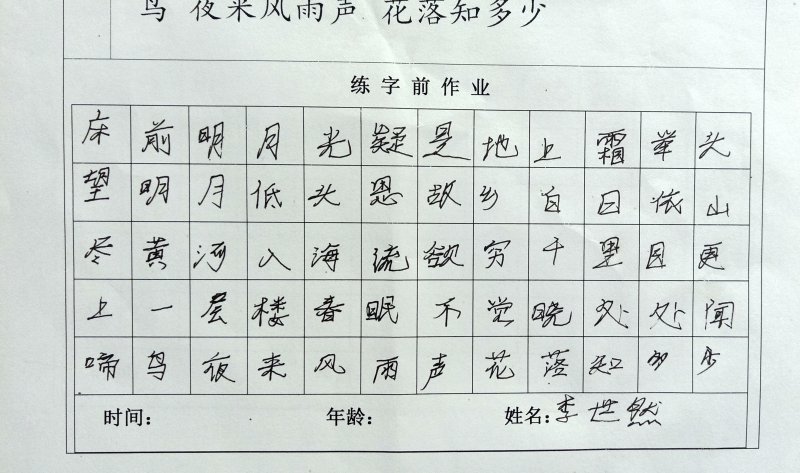 鸟 夜来风雨声 花落知多少
练字前作业
床前明月光疑是地上霜举头
望明月低头思故乡白日依山
尽黄河入海流欲穷千里目更
上一层楼春眠不觉晓处处闻
啼鸟夜来风雨声花落知多少
时间： 年龄： 姓名：李世然